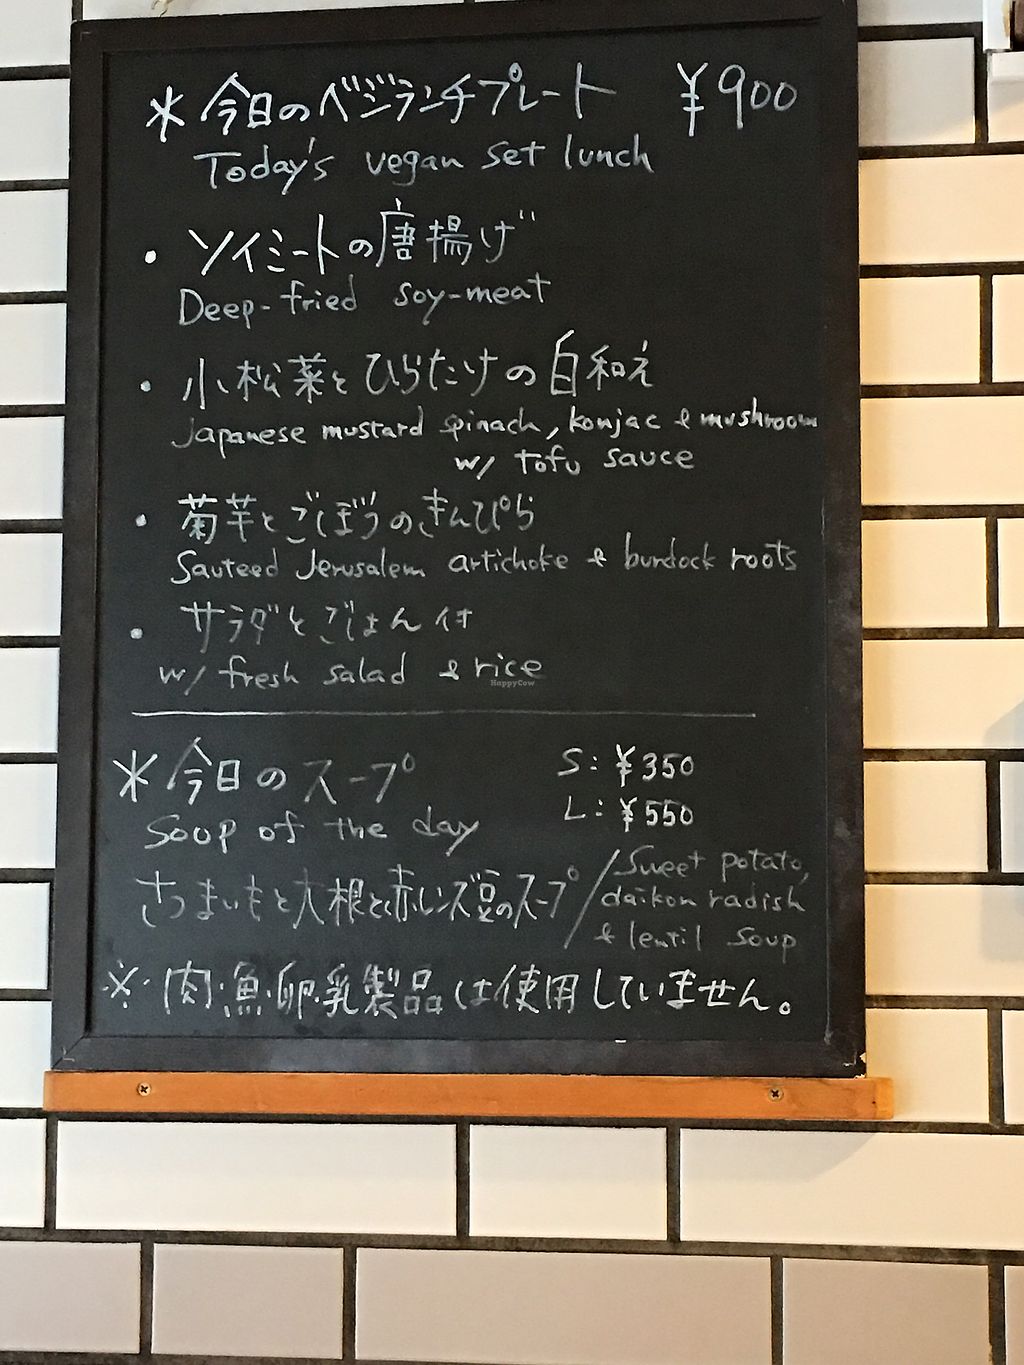 ＊今日のベジランチプレート ¥900
Today's vegan set lunch
・ソイミートの唐揚げ
Deep-fried soy-meat
・小松菜とひらたけの白和え
Japanese mustard spinach, konjac & mushroom
w/ tofu sauce
・菊芋とごぼうのきんぴら
Sauteed Jerusalem artichoke & burdock roots
・サラダとごはん付
w/ fresh salad & rice
HappyCow
＊今日のスープ S: ¥350
L: ¥550
Soup of the day
さつまいもと大根と赤レンズ豆のスープ / Sweet potato,
daikon radish
& lentil soup
※肉・魚・卵・乳製品は使用していません。